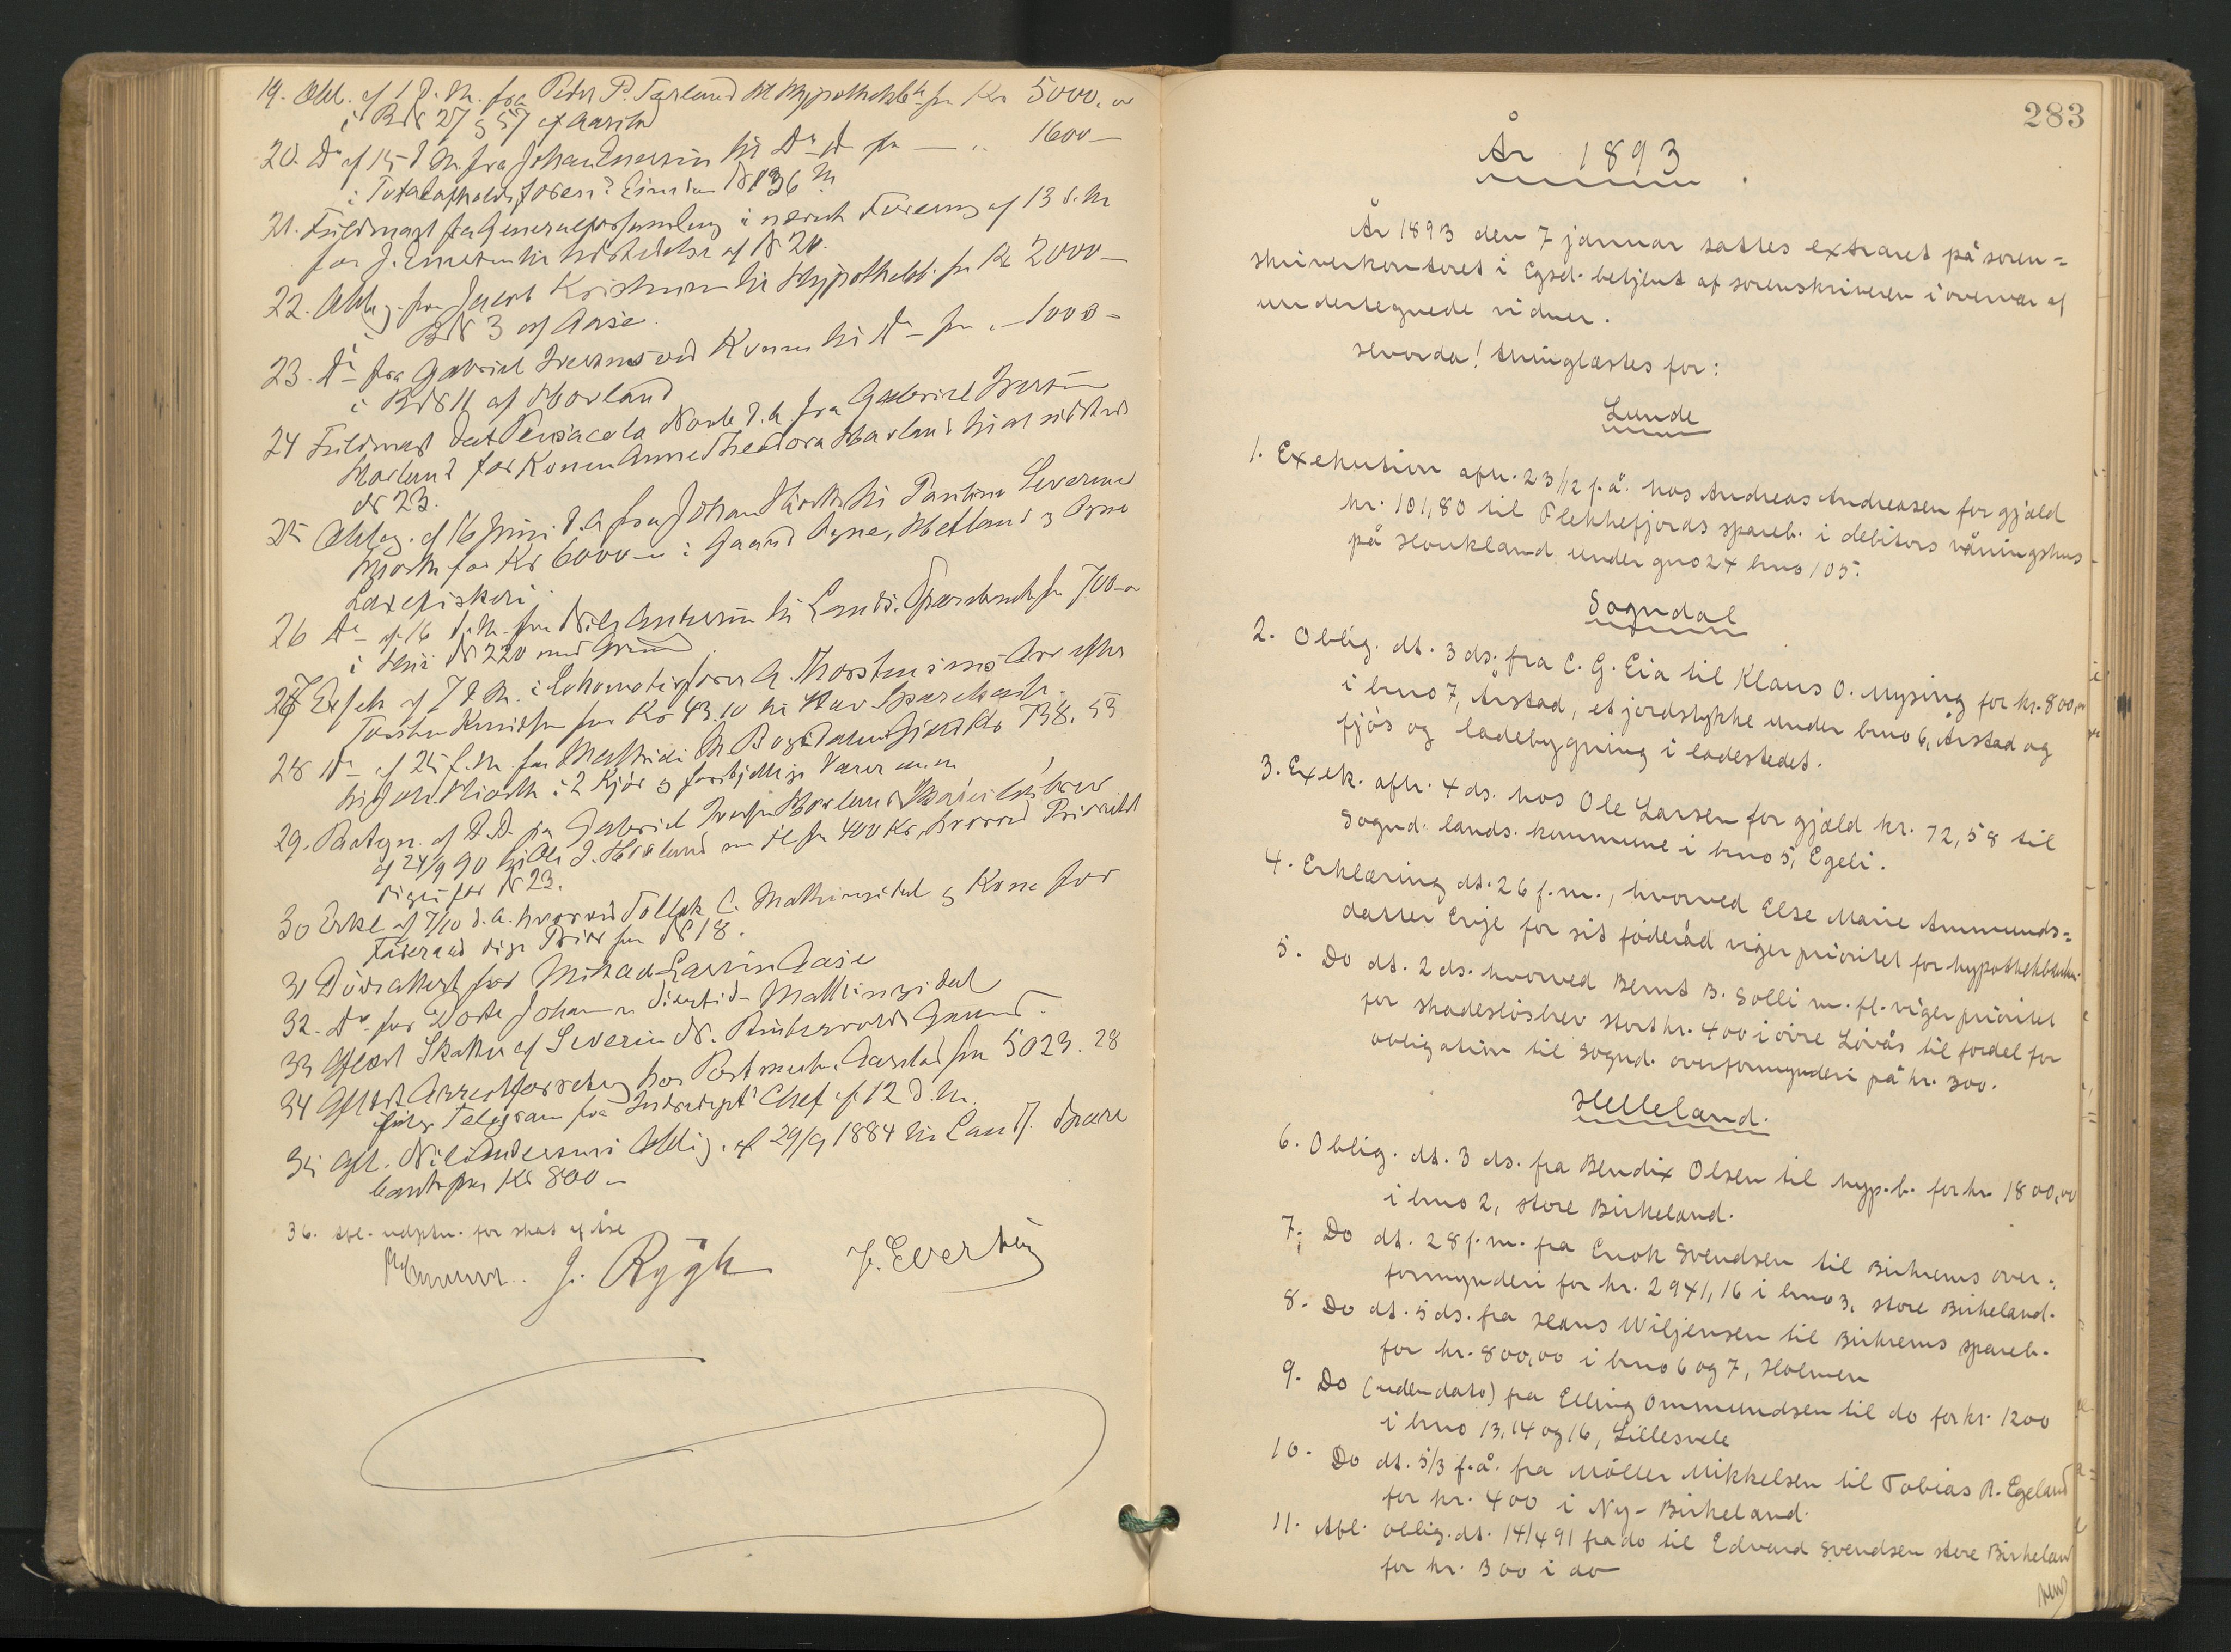 19. Obl. af 1 d. M. fra Peder P. Tarland til Hypothekbk for Kr 5000,00
i BN 27 & 57 af Aarstad
20. Do af 15 d M. fra Johan Emersen til Do Do for — „ 1600—
i Totalafholdsforen
21. Fuldmagt fra Generalforsamling i nævnte Forening af 13 d. M
for J. Emersen til Udstedelse af N 20.
22. Oblig. fra Jacob til Hypothekb. for Kr 2000—
i BN 3 af Aase.
23. Do fra Gabriel til Do for „ — 1000 —
i BN 11 af Hovland
24 Fuldmagt dat Pensacola d. A fra Gabriel Iversen
Hovland for Konen Anne Theodora Hovland til at udstede
N 23.
25 Oblig. af 16 Juni d. A fra Johan til Severine
for Kr 6000 — i Gaard Ogne, Hetland & Ogne
Laxefiskeri.
26 Do af 16 d. M. fra Nils Andersen til Lands. Sparebank for 700—
i Hus N 220 med Grund
27 Exek af 7 d. M. i Lokomotivfører A. Thorstensens Arv efter
Knudsen for Kr 43.10 til Stav Sparekasse.
28 Do af 25 f. M. for Gjæld Kr 738.53
i 2 Kjør & forskjellige Varer m.m
29. Paategn. af D.D. fra Gabriel Hovland Skadesløsbrev
af 24/9 90 til Ole J. Hovland for 400 Kr, hvorved Prioritet
viges for N 23.
30 Erkl af 7/10 d. A. hvorved Tollak C. Mathingsdal & Kone for
Føderaad viger Prior for N 18.
31 Dødsattest for Mikael Larsen Aase
32. Do for Dorte Johanne Mathingsdal
33 Aflæst Skatter af Severin N. Grund.
34 Aflæst Arrestforretning hos Postmester Aarstad for 5023.28
ifølge Telegram fra Chef af 12 d. M.
35 Afl. Nils Andersens Oblig. af 29/9 1884 til Lands. Spare
bank for Kr 800 —
36. Afl. udptn. for skat af Åse
J. Rygh J. Evertsen
283
År 1893.
År 1893 den 7 januar sattes extraret på soren=
skriverkontoret i Egsd. betjent af sorenskriveren i overvær af
undertegnede vidner.
Hvorda! thinglæstes for:
Lunde
1. Exekution afh. 23/12 f.å. hos Andreas Andreasen for gjæld
kr. 101,80 til Flekkefjords spareb. i debitors våningshus
på Houkland under gno 24 bno 105.
Sogndal
2. Oblig. dt. 3 ds. fra C. G. Eia til Klaus O. Mysing for kr. 800,00
i bno 7, Årstad, et jordstykke under bno 6, Årstad og
fjøs og ladebygning i ladestedet.
3. Exek. afh. 4 ds. hos Ole Larsen for gjæld kr. 72,58 til
Sognd. lands. kommune i bno 5, Egeli.
4. Erklæring dt. 26 f.m., hvorved Else Marie Ammunds=
datter Evje for sit föderåd viger prioritet for hypothekbanken
5. Do dt. 2 ds. hvorved Bernt B. Solli m. fl. viger prioritet
for skadeslösbrev stort kr. 400 i övre Lövås til fordel for
obligation til Sognd. overformynderi på kr. 300.
Helleland.
6. Oblig. dt. 3 ds. fra Bendix Olsen til hyp.b. for kr. 1800,00
i bno 2, store Birkeland.
7. Do dt. 28 f.m. fra Enok Svendsen til Birkrems over=
formynderi for kr. 2941,16 i bno 3, store Birkeland.
8. Do dt. 5 ds. fra Hans Wiljensen til Birkrems spareb.
for kr. 800,00 i bno 6 og 7, Holmen
9. Do (uden dato) fra Elling Ommundsen til do for kr. 1200
i bno 13, 14 og 16, Lillesvele
10. Do dt. 5/3 f.å. fra Möller Mikkelsen til Tobias R. Egeland
for kr. 400 i Ny-Birkeland.
11. Afl. oblig. dt. 14/4 91 fra do til Edvard Svendsen store Birkeland
for kr. 300 i do